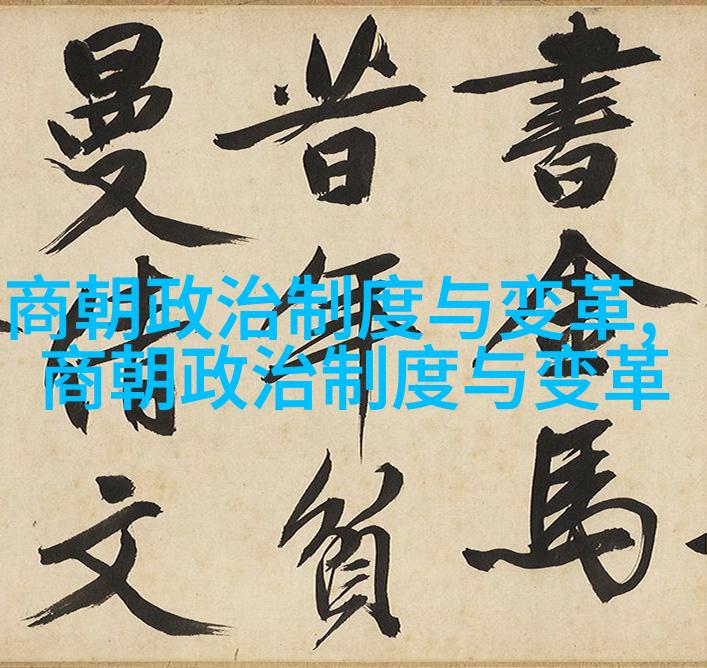 書金馬
昔年貧
曼倩文
商朝政治制度与变革,
商朝政治制度与变革